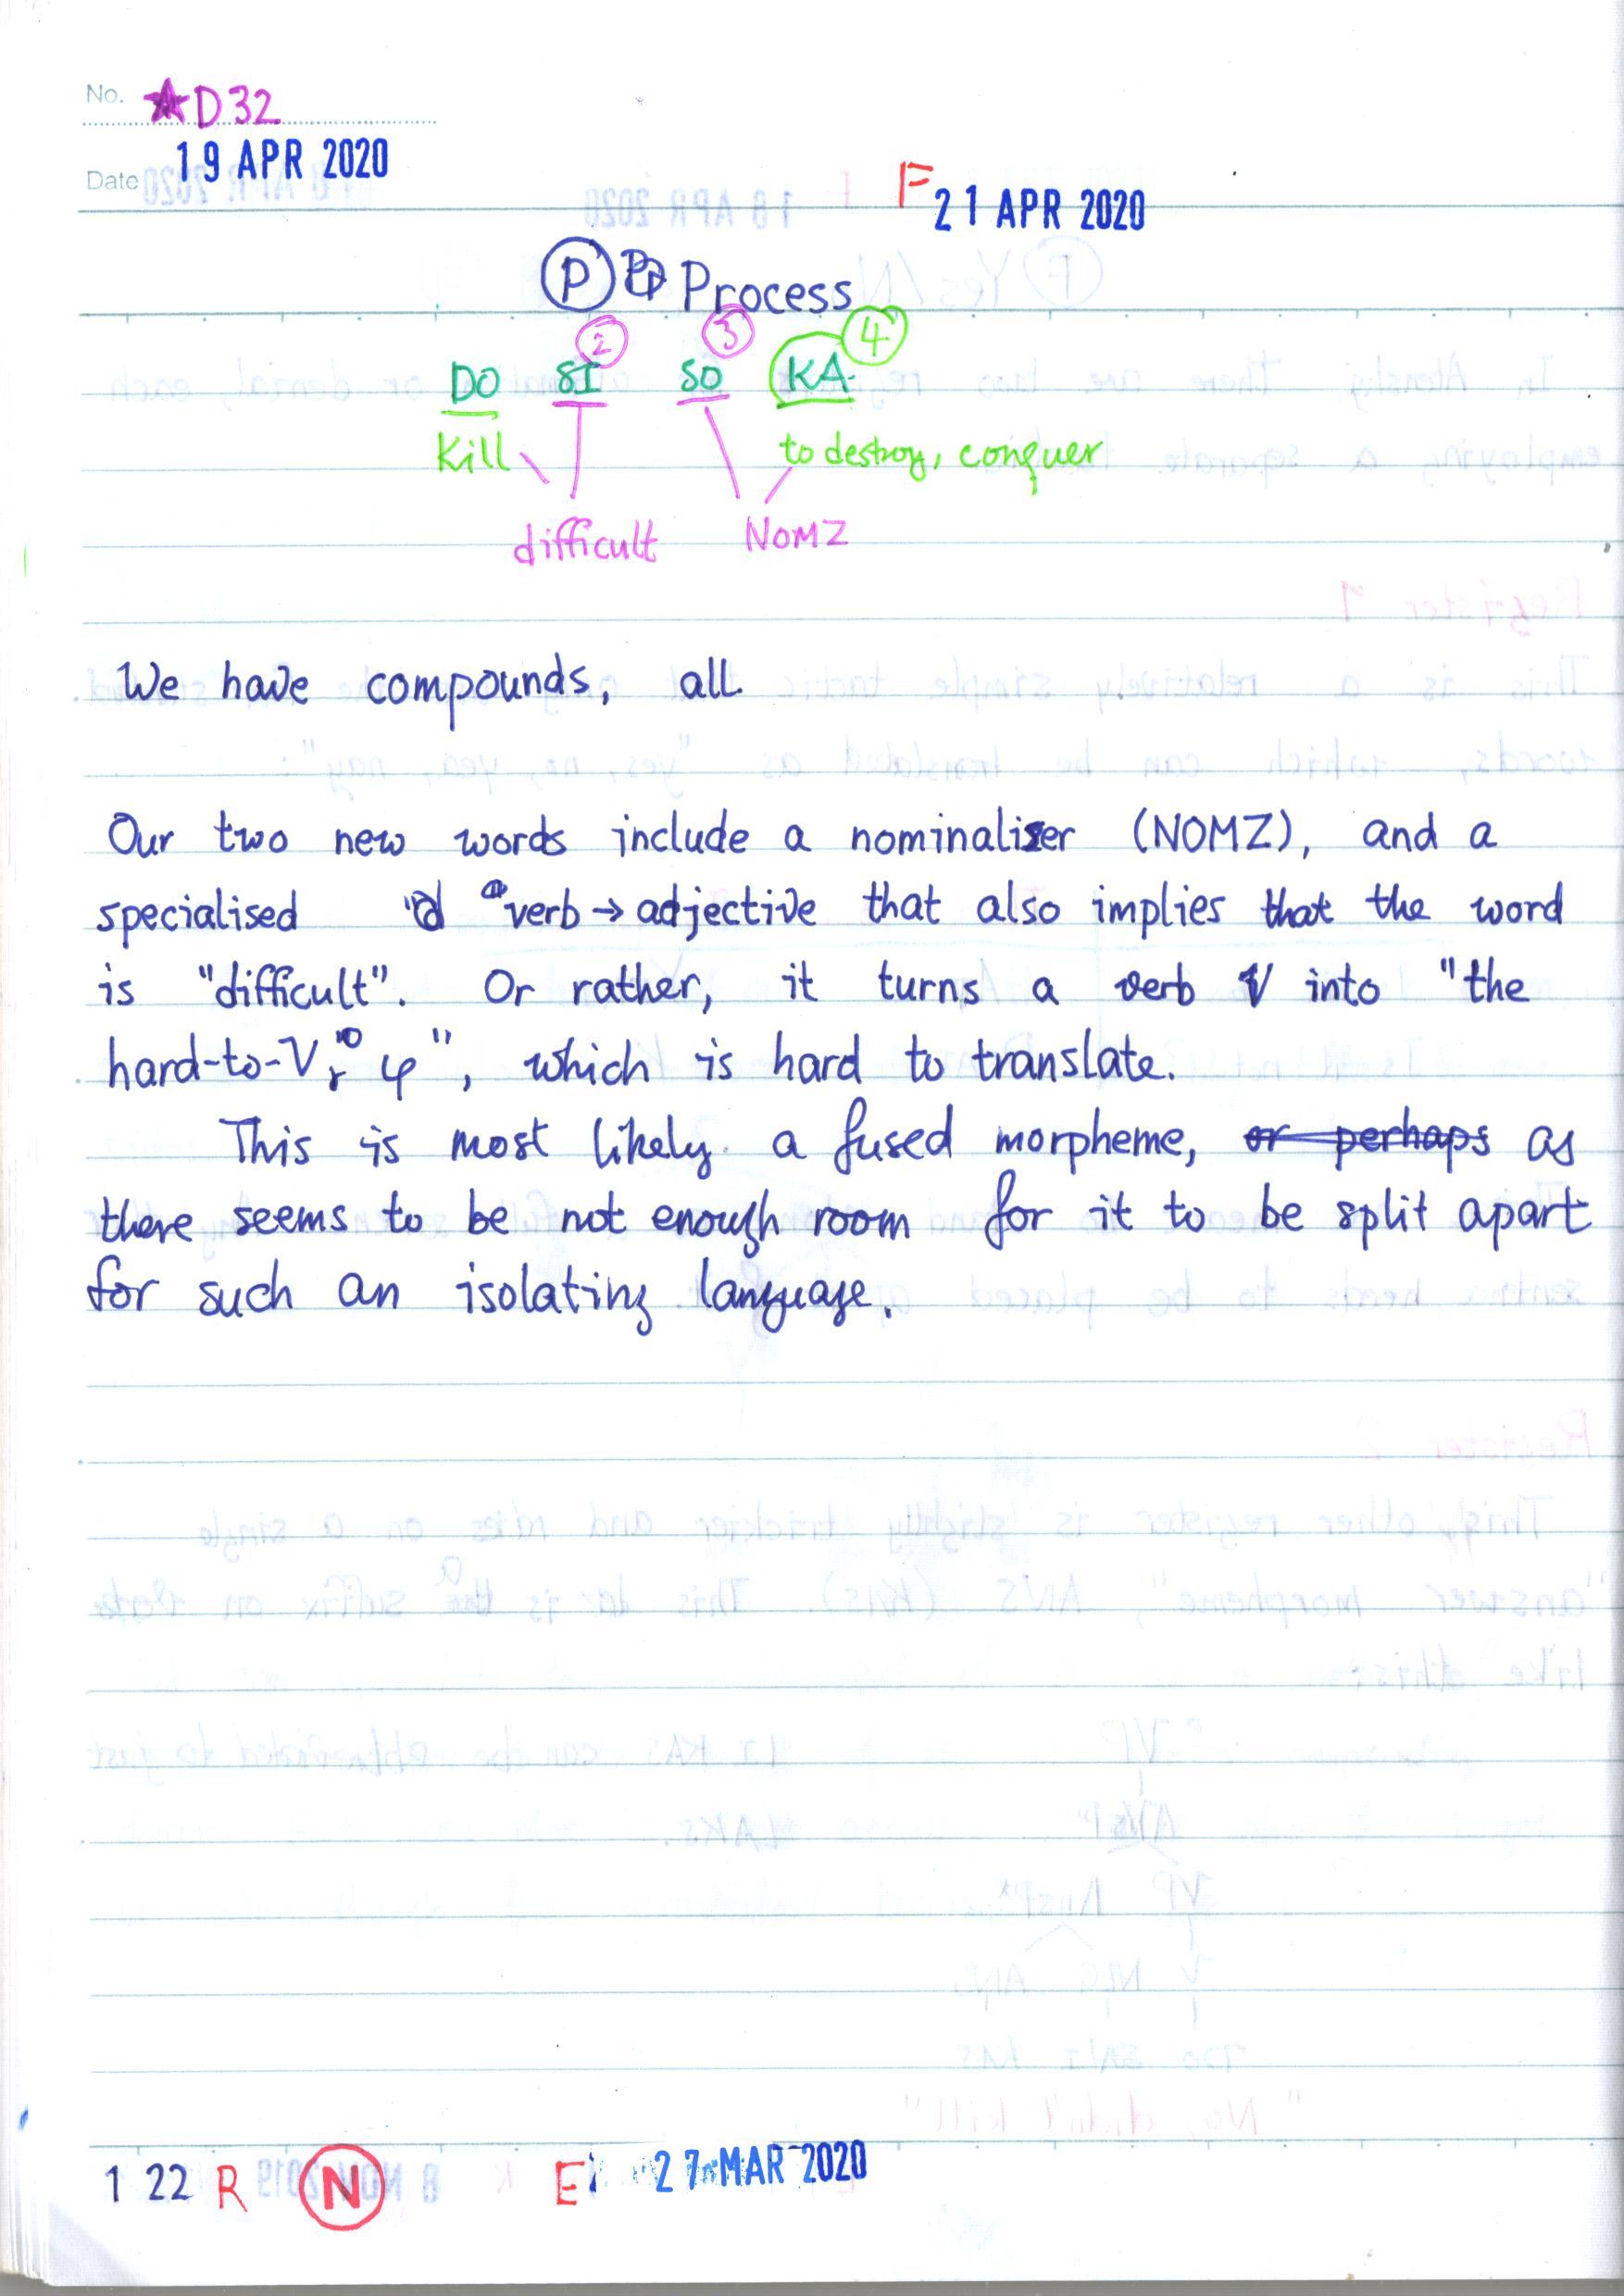 No. ★D32
Date 19 APR 2020
F 21 APR 2020
P Process
2 3 4
DO SI SO KA
Kill to destroy, conquer
difficult NOMZ
We have compounds, all
Our two new words include a nominaliser (NOMZ), and a
specialised verb → adjective that also implies that the word
is "difficult". Or rather, it turns a verb V into "the
hard-to-V φ", which is hard to translate.
This is most likely a fused morpheme, or perhaps as
there seems to be not enough room for it to be split apart
for such an isolating language.
122 R N E 27 MAR 2020